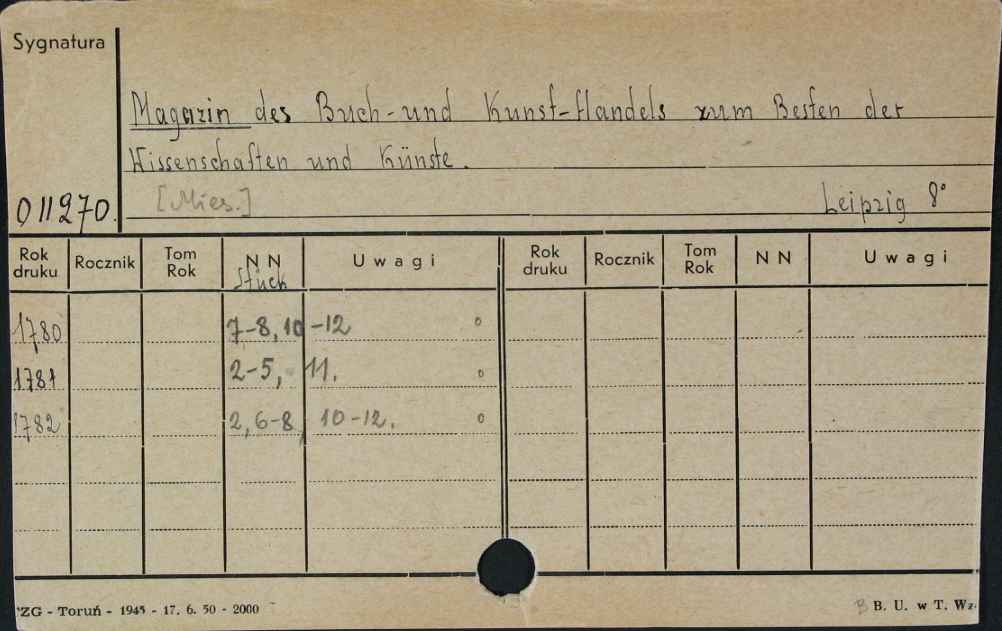 Sygnatura
Magazin des Buch-und Kunst-Handels zum Besten der
Wissenschaften und Künste.
011270. [Mies.] Leipzig 8°
Rok druku Rocznik Tom Rok NN Uwagi Rok druku Rocznik Tom Rok NN Uwagi
Stück
1780 7-8, 10-12 °
1781 2-5, 11. °
1782 2, 6-8, 10-12. °
ZG - Toruń - 1945 - 17. 6. 50 - 2000 B B. U. w T. Wz.